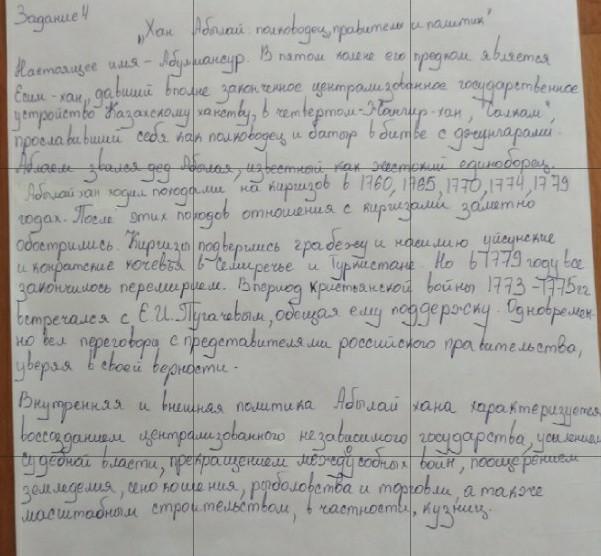 Задание 4
„Хан Абылай: полководец, правитель и политик"
Настоящее имя - Абулмансур. В пятом колене его предком является
Есим-хан, давший вполне законченное централизованное государственное
устройство Казахскому ханству, в четвертом - Жангир-хан, "Салкам",
прославивший себя как полководец и батыр в битве с джунгарами.
Аблаем звался дед Абылая, известный как жестокий единоборец.
Абылай хан ходил походами на киргизов в 1760, 1765, 1770, 1774, 1779
годах. После этих походов отношения с киргизами заметно
обострились. Киргизы подверглись грабежу и насилию уйсунские
и конратские кочевья в Семиречье и Туркистане. Но в 1779 году все
закончилось перемирием. В период кристьянской войны 1773 - 1775 гг
встречался с Е.И. Пугачевым, обещая ему поддержку. Одновремен-
но вел переговоры с представителями российского правительства,
уверяя в своей верности.
Внутренняя и внешняя политика Абылай хана характеризуется
воссозданием централизованного независимого государства, усилением
судебной власти, прекращением междусобных войн, поощерением
земледелия, сенокошения, рыболовства и торговли, а также
масштабным строительством, в частности, кузниц.